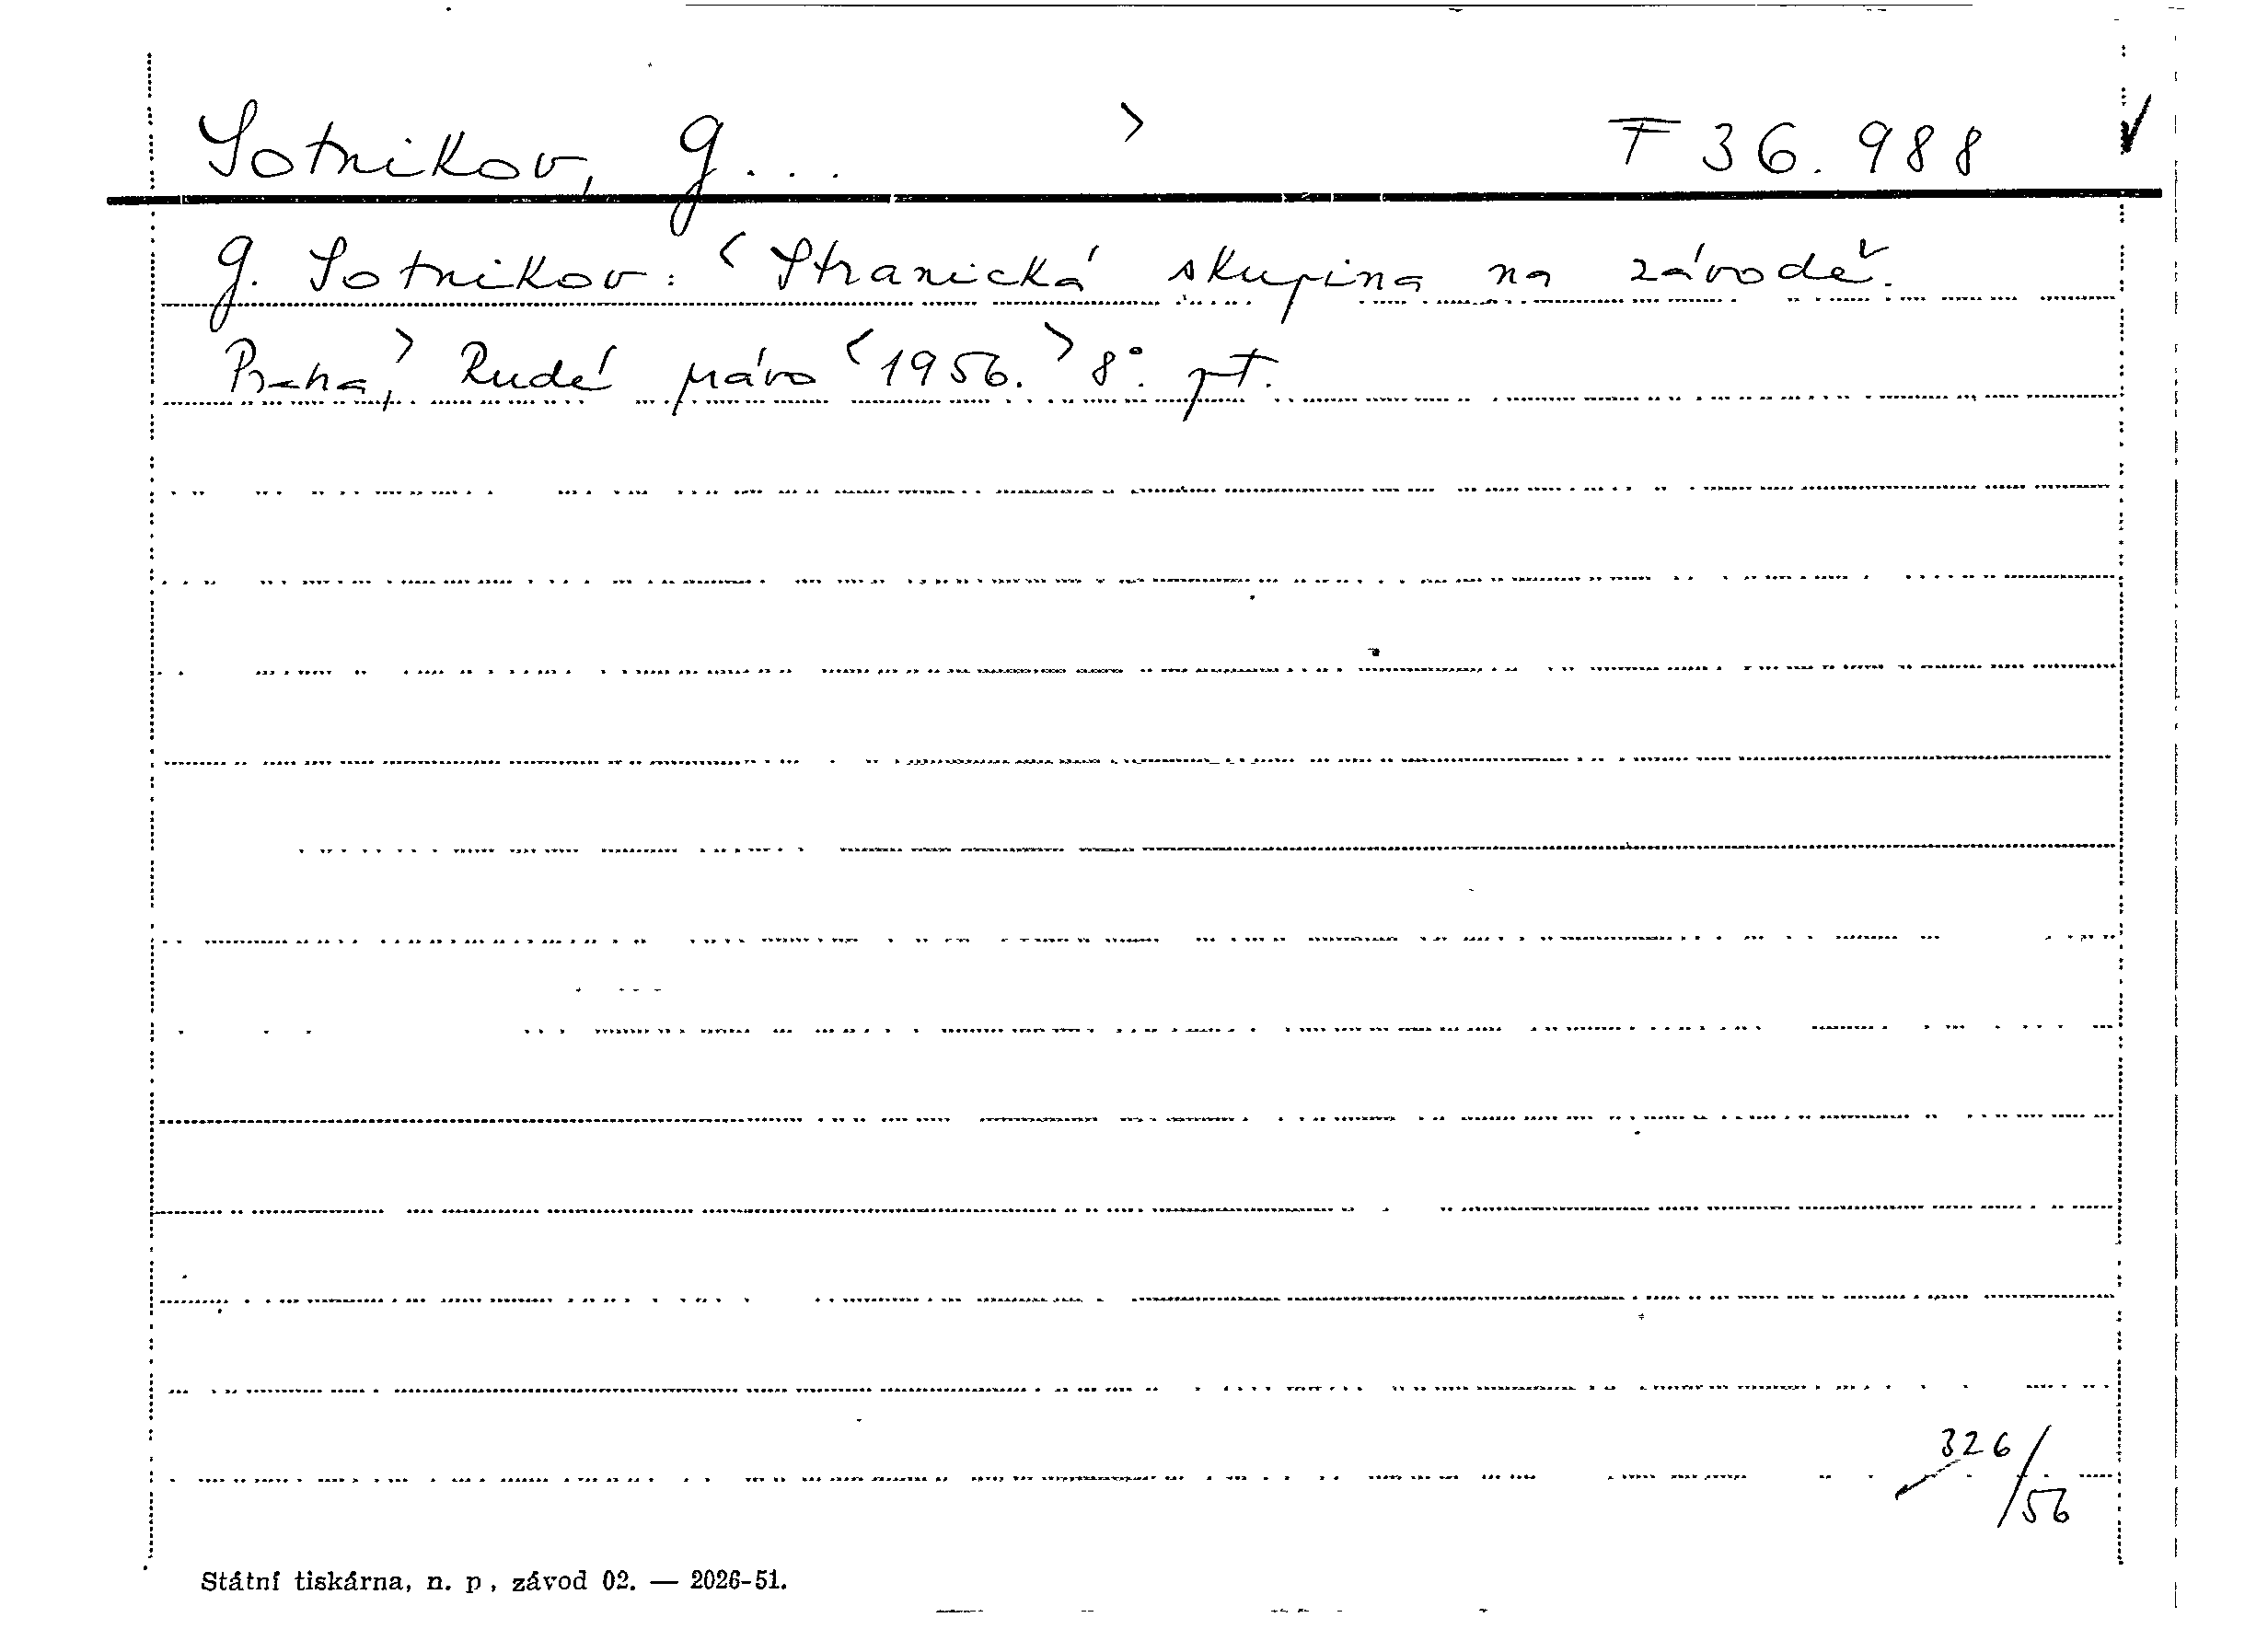 Sotnikov, G... > F 36.988 ✓
G. Sotnikov: < Stranická skupina na závodě.
Praha, > Rudé právo < 1956. > 8°. pt.
326/56
Státní tiskárna, n. p., závod 02. — 2026-51.